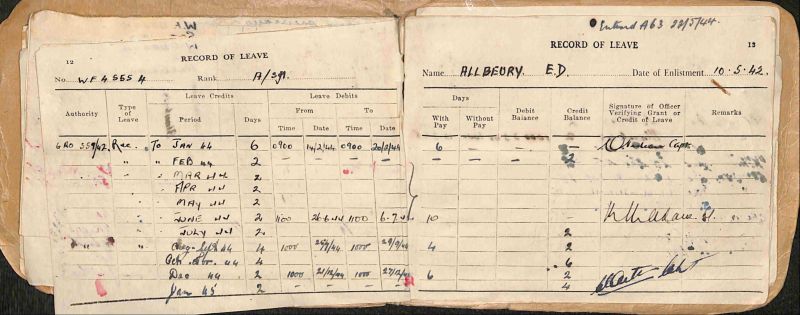 12
RECORD OF LEAVE
No. WF45654 Rank A/Sgt.
Authority Type of Leave Leave Credits Leave Debits
Period Days From To
Time Date Time Date
GRO 359/42. Rec. To JAN 44 6 0900 14/2/44 0900 20/2/44
" " FEB 44 2 — — — —
" " MAR 44 2
" " APR 44 2
" " MAY 44 2
" " JUNE 44 2 1100 26-6-44 1100 6-7-44
" " JULY 44 2
" " " Aug-Sept 44 4 1000 1000 29/9/44
Oct. Nov. 44 4
Dec 44 2 1000 21/12/44 1000 27/12/44
Jan 45 2
Entered A63 22/5/44.
RECORD OF LEAVE 13
Name ALLBEURY E.D. Date of Enlistment 10.5.42.
Days Debit Balance Credit Balance Signature of Officer Verifying Grant or Credit of Leave Remarks
With Pay Without Pay
6 — Capt.
— — — 2
10 -
2
4 2
6
6 2
4